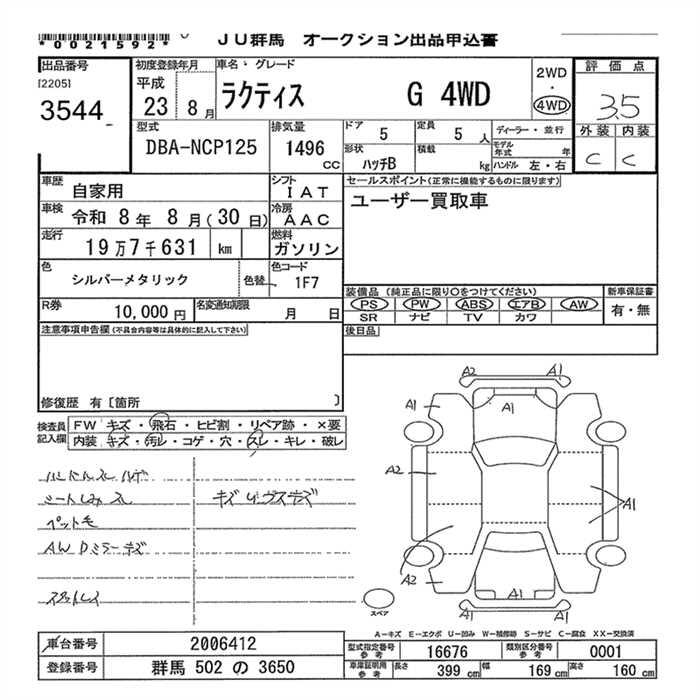 *0021592*
JU群馬 オークション出品申込書
出品番号 初度登録年月 車名・グレード 2WD・4WD 評価点
[2205] 平成
3544 23 8月 ラクティス G 4WD 3.5
型式 排気量 ドア 定員 ディーラー・並行 外装 内装
DBA-NCP125 1496cc 5 5人 モデル年式 年 C C
形状 積載 kg ハンドル 左・右
ハッチB
車歴 自家用 シフト IAT セールスポイント(正常に機能するものに限ります)
車検 令和 8年 8月(30日) 冷房 AAC ユーザー買取車
走行 19万7千631 km 燃料 ガソリン
色 シルバーメタリック 色替 色コード 1F7
装備品 (純正品に限り○をつけてください) 新車保証書
R券 10,000円 名変通知期限 月 日 PS PW ABS エアB AW 有・無
SR ナビ TV カワ
注意事項申告欄(不具合内容等は具体的に記入して下さい) 後日品
修復歴 有〔箇所 〕
検査員記入欄 FW キズ・飛石・ヒビ割・リペア跡・×要
内装 キズ・汚レ・コゲ・穴・スレ・キレ・破レ
ハンドルスレ ハゲ
シートしみ スレ キズ
ペット毛
AW Dミラーキズ
スタットレス
A2 A1
A1 A1
A2
A1
A2
A1
A1 A1
スペア
A-キズ E-エクボ U-凹み W-補修跡 S-サビ C-腐食 XX-交換済
車台番号 2006412 型式指定番号 参考 16676 類別区分番号 参考 0001
登録番号 群馬 502 の 3650 車庫証明用 参考 長さ 399 cm 幅 169 cm 高さ 160 cm